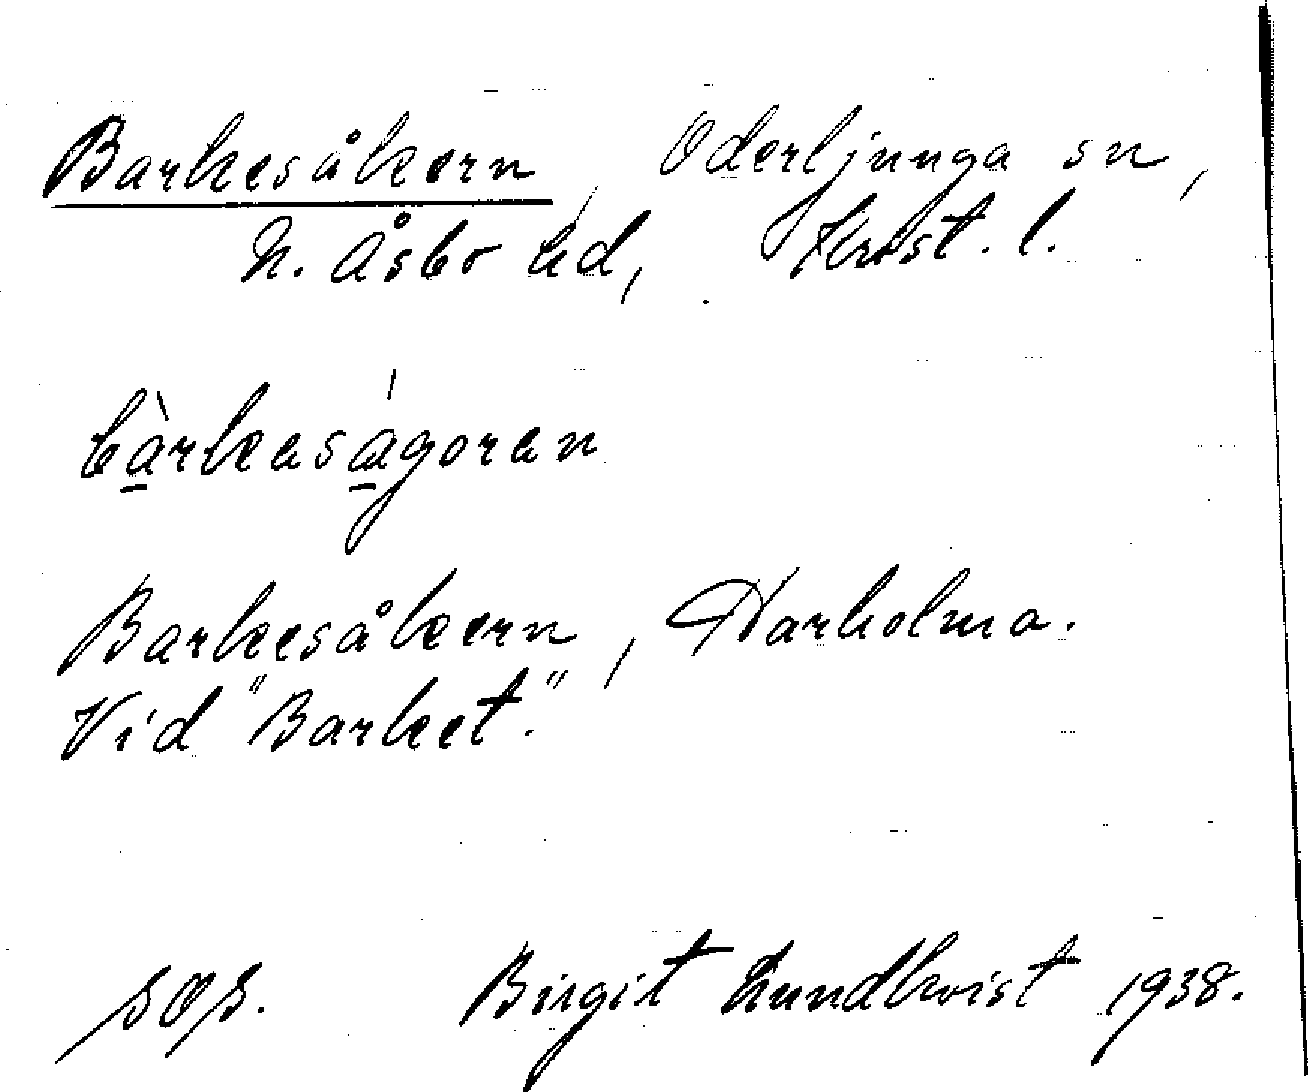 Barkesåkern, Oderljunga sn,
N. Åsbo hd, Krist. l.
bàrkaságoran
Barkesåkern, Harholma.
Vid "Barket."
Birgit Lundkvist 1938.